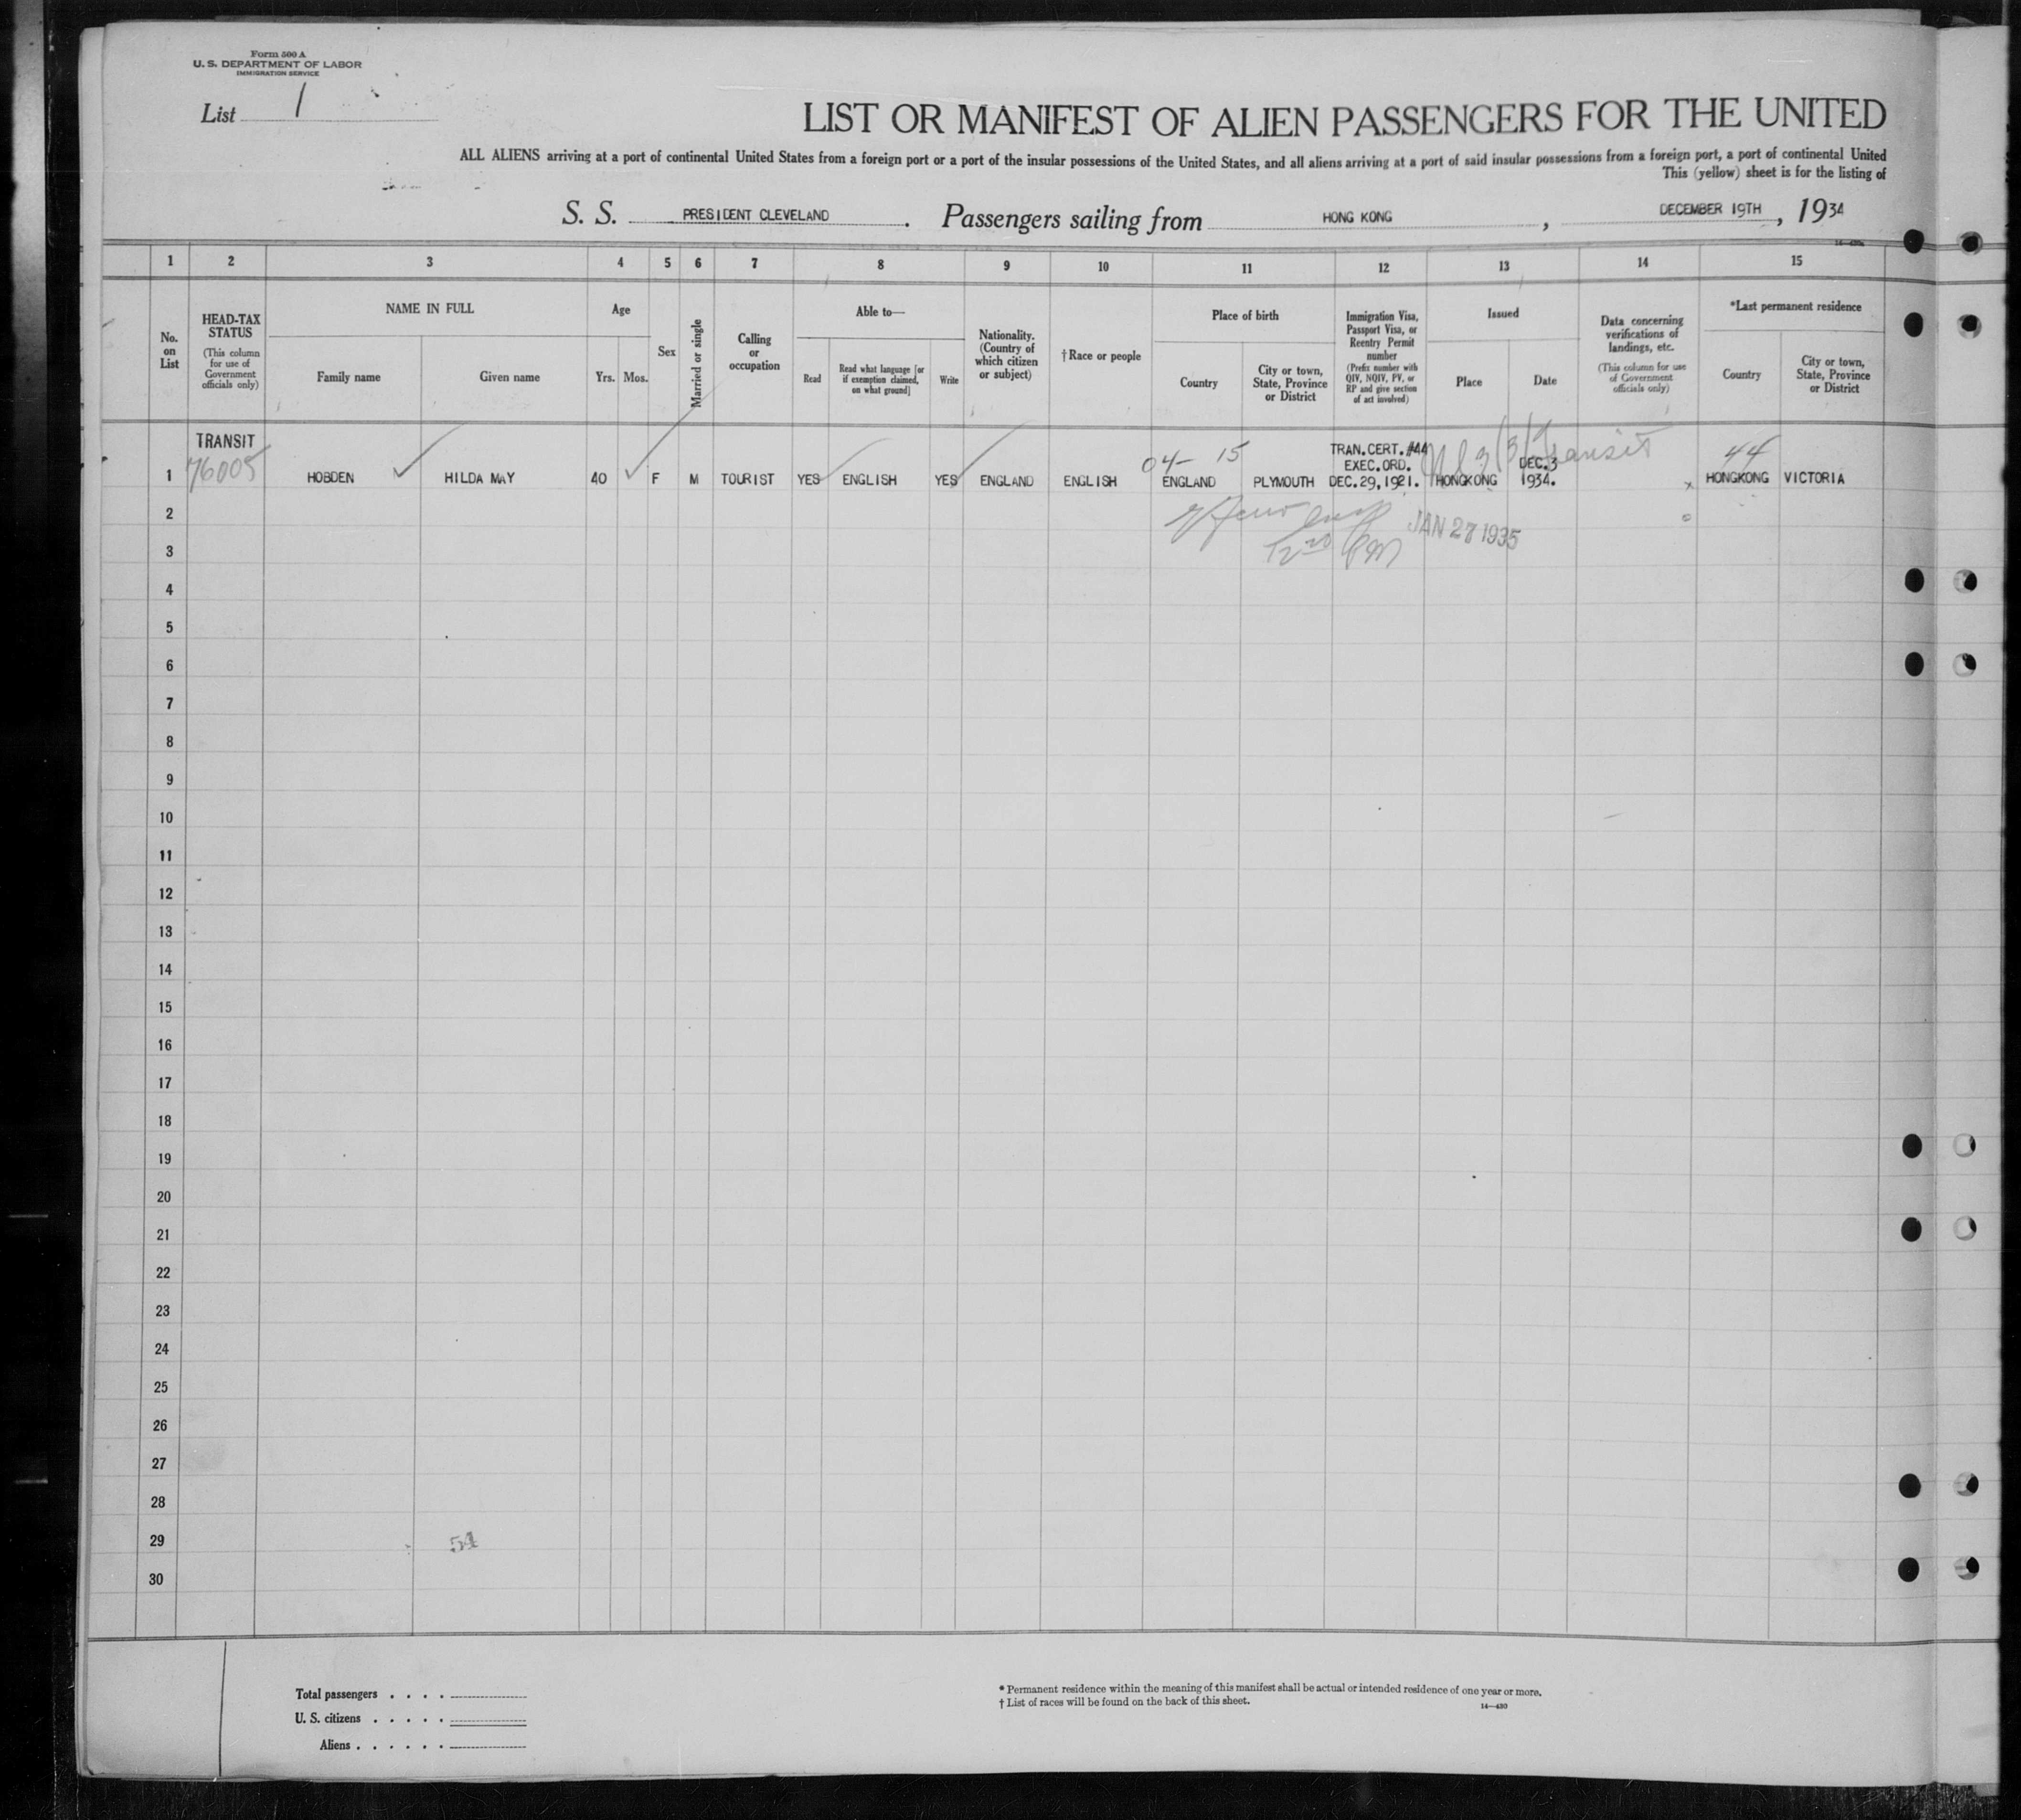 Form 500 A
U. S. DEPARTMENT OF LABOR
IMMIGRATION SERVICE
List 1
LIST OR MANIFEST OF ALIEN PASSENGERS FOR THE UNITED
ALL ALIENS arriving at a port of continental United States from a foreign port or a port of the insular possessions of the United States, and all aliens arriving at a port of said insular possessions from a foreign port, a port of continental United
This (yellow) sheet is for the listing of
S. S. PRESIDENT CLEVELAND. Passengers sailing from HONG KONG, DECEMBER 19TH, 1934
1 2 3 4 5 6 7 8 9 10 11 12 13 14 15
No. on List
HEAD-TAX STATUS
(This column for use of Government officials only)
NAME IN FULL
Family name Given name
Age
Yrs. Mos.
Sex
Married or single
Calling or occupation
Able to—
Read
Read what language [or if exemption claimed, on what ground]
Write
Nationality. (Country of which citizen or subject)
†Race or people
Place of birth
Country
City or town, State, Province or District
Immigration Visa, Passport Visa, or Reentry Permit number
(Prefix number with QIV, NQIV, PV, or RP and give section of act involved)
Issued
Place Date
Data concerning verifications of landings, etc.
(This column for use of Government officials only)
*Last permanent residence
Country
City or town, State, Province or District
TRANSIT
76005
04- 15
TRAN.CERT.#44
EXEC.ORD.
3(3) Transit
DEC.3
44
1 HOBDEN HILDA MAY 40 F M TOURIST YES ENGLISH YES ENGLAND ENGLISH ENGLAND PLYMOUTH DEC.29,1921. HONGKONG 1934. x HONGKONG VICTORIA
2
JAN 27 1935
3
4
5
6
7
8
9
10
11
12
13
14
15
16
17
18
19
20
21
22
23
24
25
26
27
28
29
54
30
Total passengers . . . .
U. S. citizens . . . . .
Aliens . . . . . .
* Permanent residence within the meaning of this manifest shall be actual or intended residence of one year or more.
† List of races will be found on the back of this sheet.
14—430